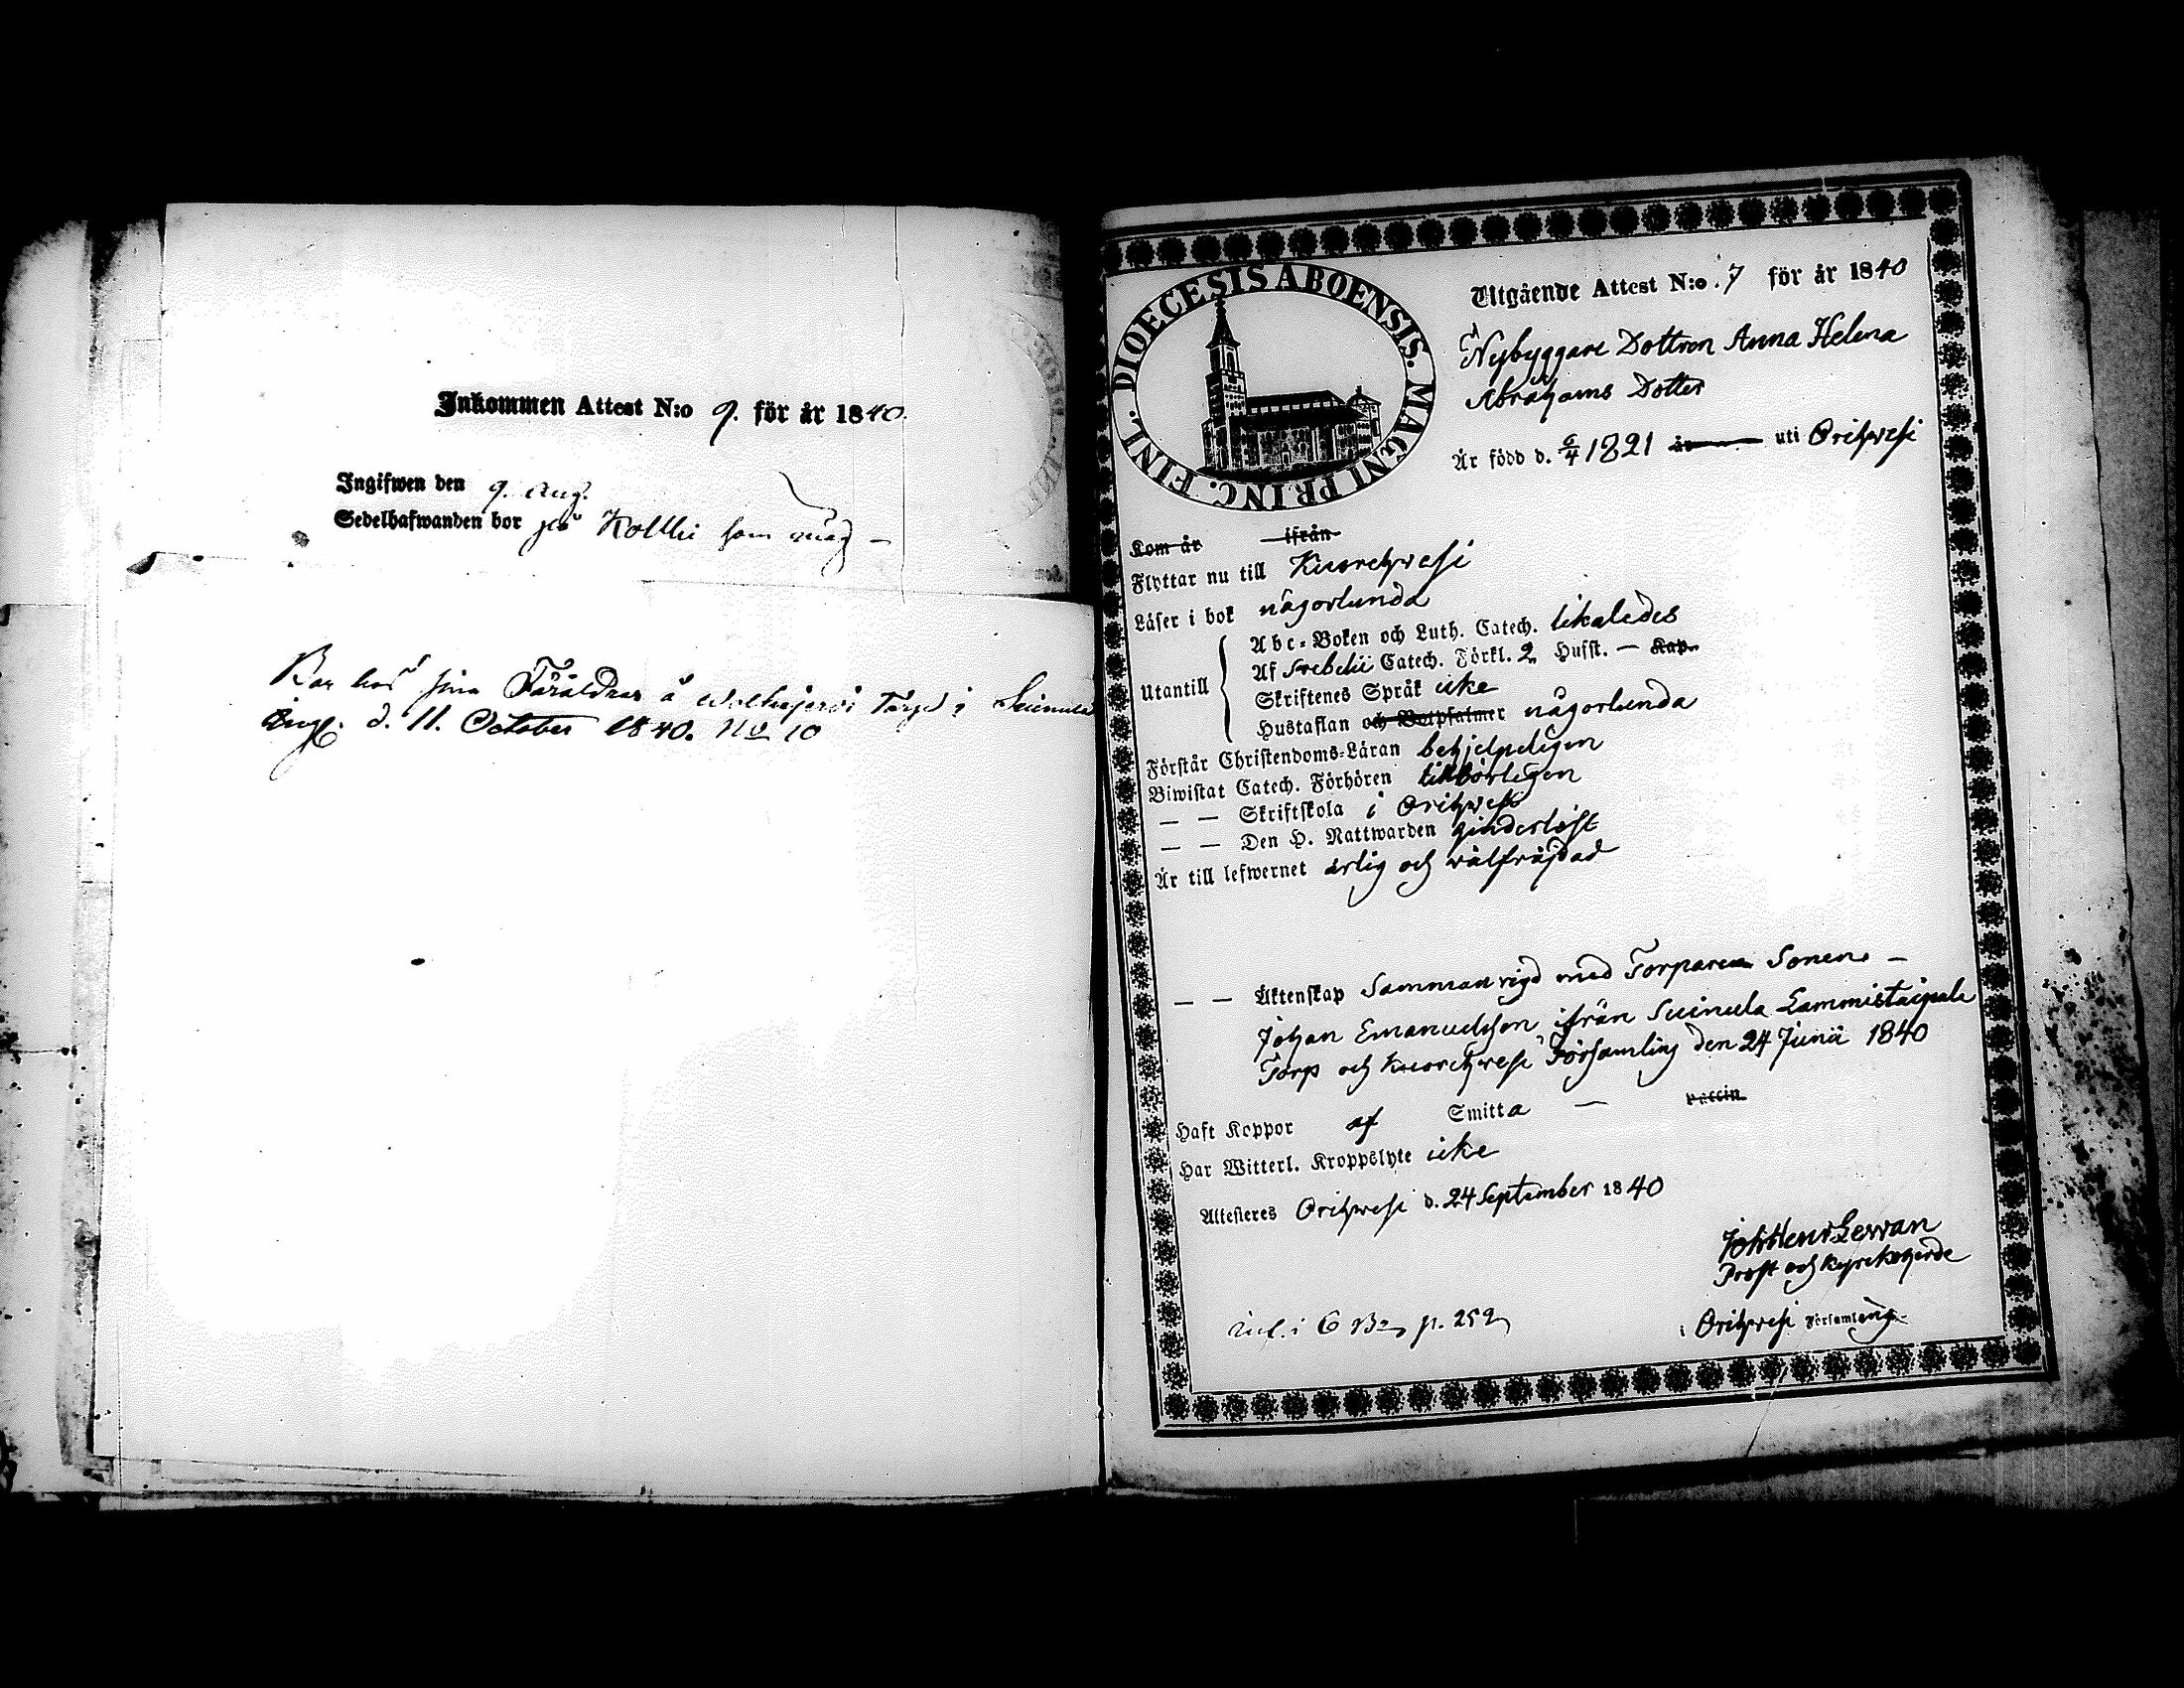 Inkommen Attest N:o 9. för år 1840.
Ingifwen den 9. Aug.
Sedelhafwanden bor på Kollki som måg —
Bor hos sina Föräldrar å Torp i Suinula
Ingl. d. 11. October 1840. No 10
DIOECESIS ABOENSIS. MAGNI PRINC. FINL.
Utgående Attest N:o 7 för år 1840
Nybyggare Dottren Anna Helena
Abrahams Dotter
Är född d. 6/4 1821 år uti Orihwesi
Kom år ifrån
Flyttar nu till Kuorehwesi
Läser i bok någorlunda
Utantill
Abc-Boken och Luth. Catech. likaledes
Af Svebelii Catech. Förkl. 2 Husst. — Kap.
Skriftenes Språk icke
Hustaflan och Botpsalmer någorlunda
Förstår Christendoms-Läran behjelpeligen
Biwistat Catech. Förhören tillbörligen
— — Skriftskola i Orihwesi
— — Den H. Nattwarden hinderlöst
Är till lefwernet ärlig och wälfräjdad
— — Äktenskap Sammanvigd med Torpare Sonen —
Johan Emanuelsson ifrån Suinula Lammistaipale
Torp och Kuorehwesi Församling den 24 Junii 1840
Haft Koppor af Smitta — Vaccin
Har Witterl. Kroppslyte icke
Attesteres Orihwesi d. 24 September 1840
Joh Henr Lervan
Prost och Kyrkoherde
i Orihwesi Församling
p. 252